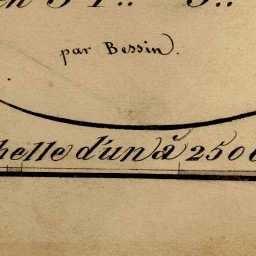 par Bessin.
helle d'un à 2500